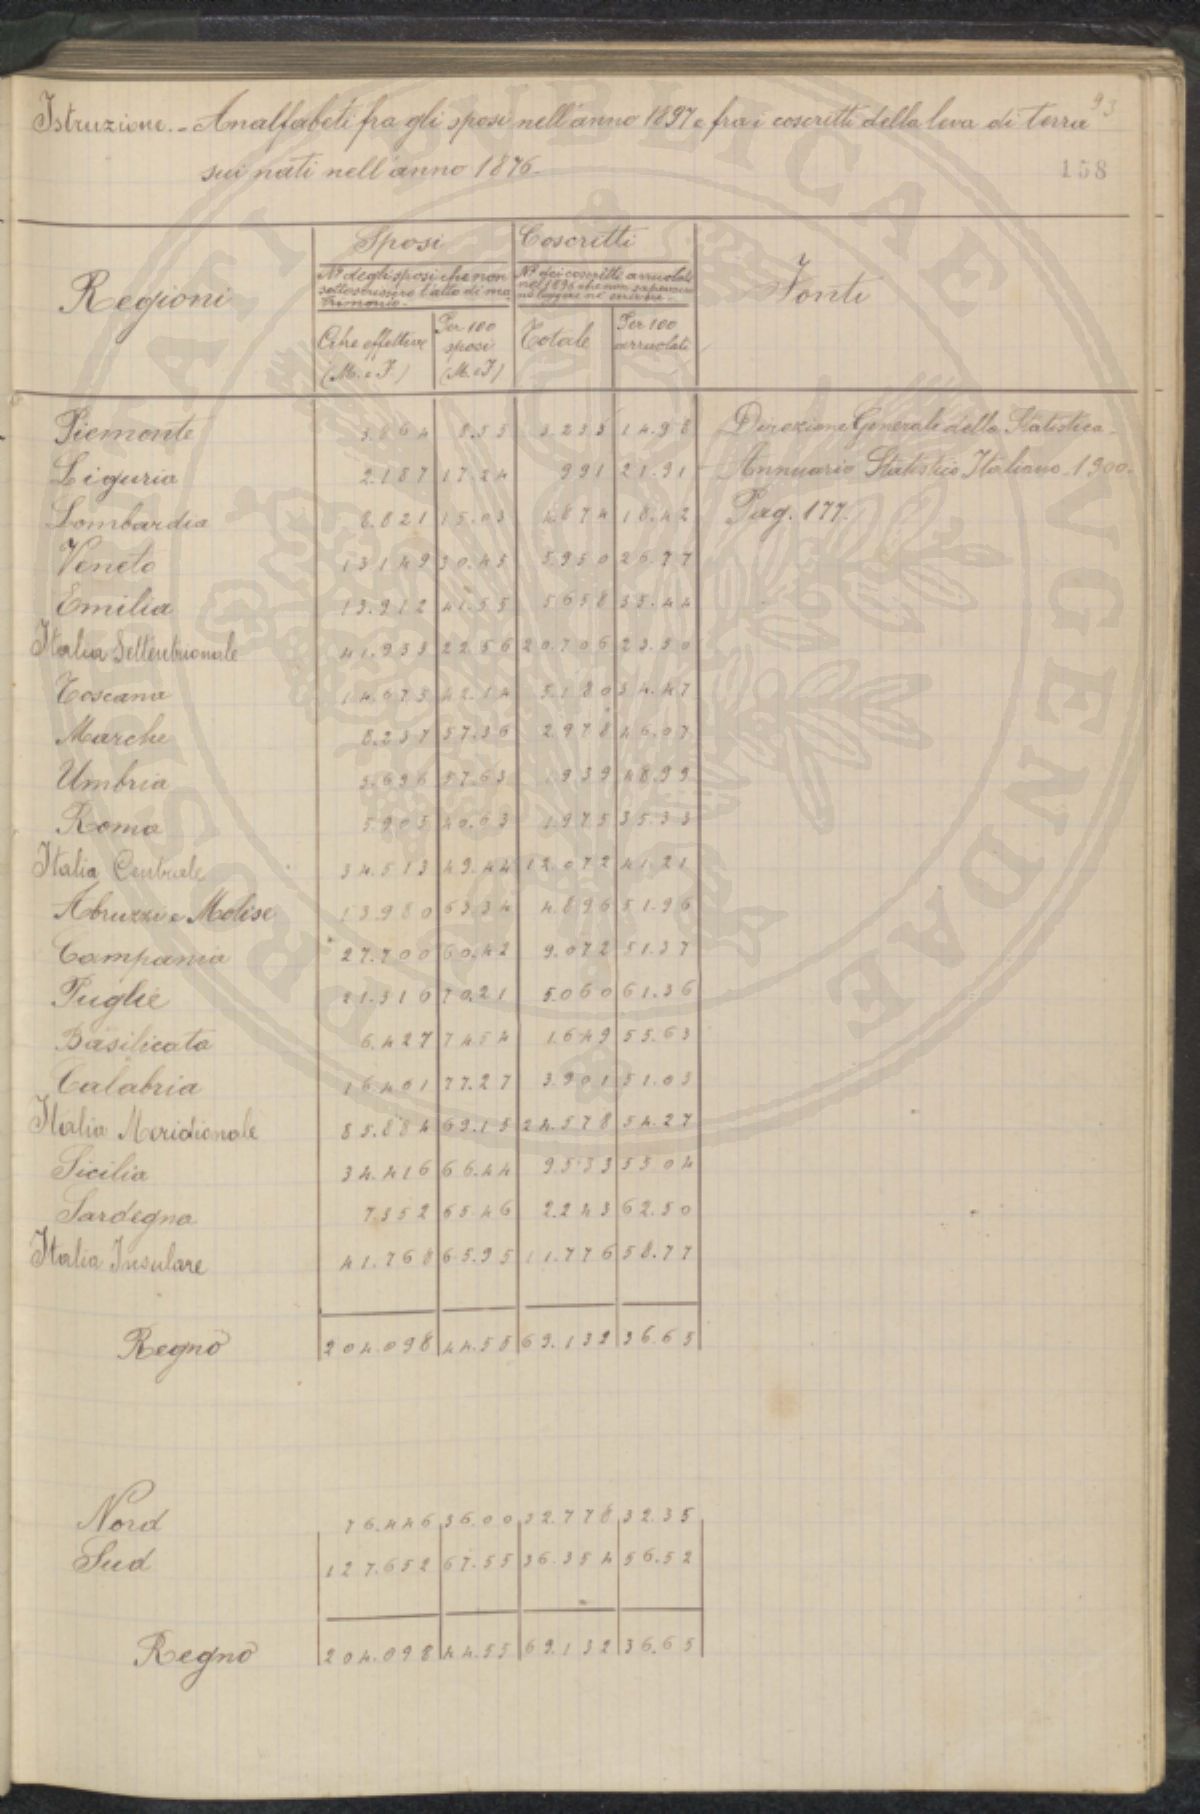 93
Istruzione. - Analfabeti fra gli sposi nell'anno 1897 e fra i coscritti della leva di terra
sui nati nell'anno 1876.
158
Regioni Sposi Coscritti Fonti
No degli sposi che non sottoscrissero l'atto di matrimonio. No dei coscritti arruolati nel 1896 che non sapevano nè leggere nè scrivere.
Cifre effettive (M. e F.) Per 100 sposi (M. e F) Totale Per 100 arruolati
Piemonte 5.864 8.55 3.233 14.98 Direzione Generale della Statistica.
Liguria 2.187 17.24 991 21.91 Annuario Statistico Italiano. 1900.
Lombardia 8.821 15.03 4.874 18.42 Pag. 177.
Veneto 13149 30.45 5.950 26.77
Emilia 13.912 41.55 5658 35.44
Italia Settentrionale 41.933 22.56 20.706 23.50
Toscana 14.675 42.14 5.180 34.47
Marche 8.237 57.36 2.978 46.07
Umbria 5.696 57.63 1.939 48.99
Roma 5.905 40.63 1.975 35.33
Italia Centrale 34.513 49.44 12.072 41.21
Abruzzi e Molise 13.980 63.34 4.896 51.96
Campania 27.700 60.42 9.072 51.37
Puglie 21.316 70.21 5.060 61.36
Basilicata 6.427 74.54 1.649 55.63
Calabria 16.461 77.27 3.901 51.03
Italia Meridionale 85.884 69.15 24.578 54.27
Sicilia 34.416 66.44 9.533 55.04
Sardegna 7.352 65.46 2.243 62.50
Italia Insulare 41.768 65.95 11.776 58.77
Regno 204.098 44.58 69.132 36.65
Nord 76.446 36.00 32.778 32.35
Sud 127.652 67.55 36.354 56.52
Regno 204.098 44.55 69.132 36.65